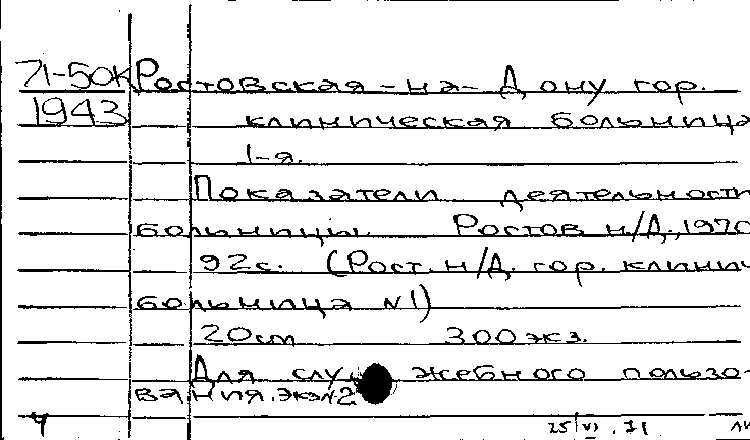 71-50к Ростовская-на-Дону гор.
1943 клиническая больница
1-я.
Показатели деятельности
больницы. Ростов н/Д., 1970
92с. (Рост. н/Д. гор. клинич
больница №1)
20см 300экз.
Для служебного пользо-
вания. экз№2
4 25/VI.71